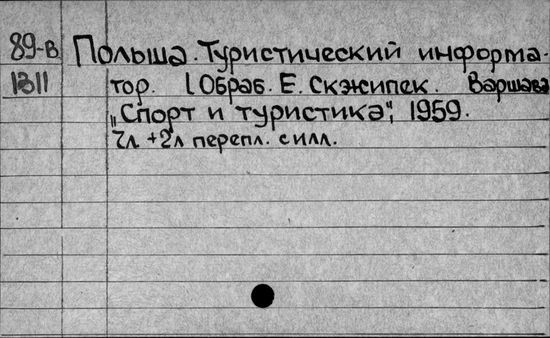 89-в Польша. Туристический информа-
1311 тор. [Обраб. Е. Скжипек. Варшава
„Спорт и туристика“, 1959.
7л. +2л перепл. с илл.